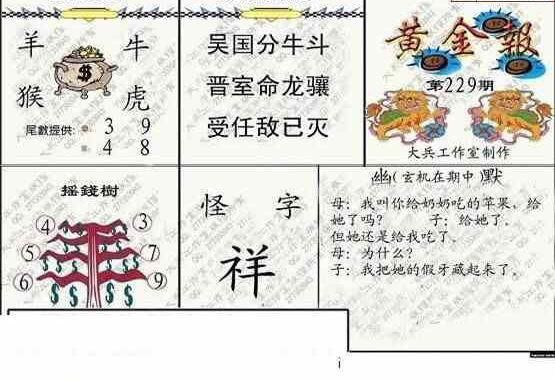 羊 牛
猴 虎
尾數提供: 3 9
4 8
吴国分牛斗
晋室命龙骧
受任敌已灭
黄金報
第229期
大兵工作室制作
摇錢樹
4 3
5 7
6 9
怪 字
祥
幽(玄机在期中 默
母:我叫你给奶奶吃的苹果,给
她了吗? 子:给她了,
但她还是给我吃了。
母:为什么?
子:我把她的假牙藏起来了。
i